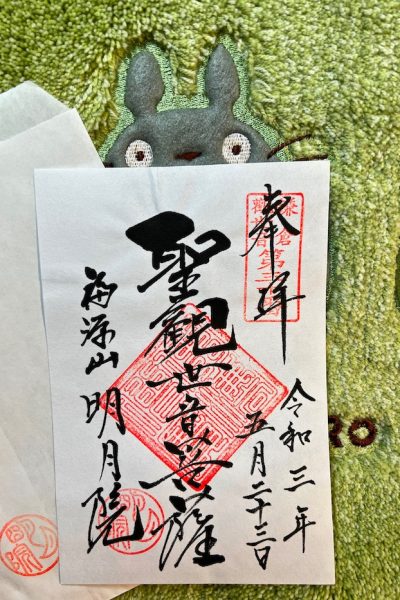 奉拝
令和三年
五月二十三日
聖觀世音菩薩
福源山
明月院
RO